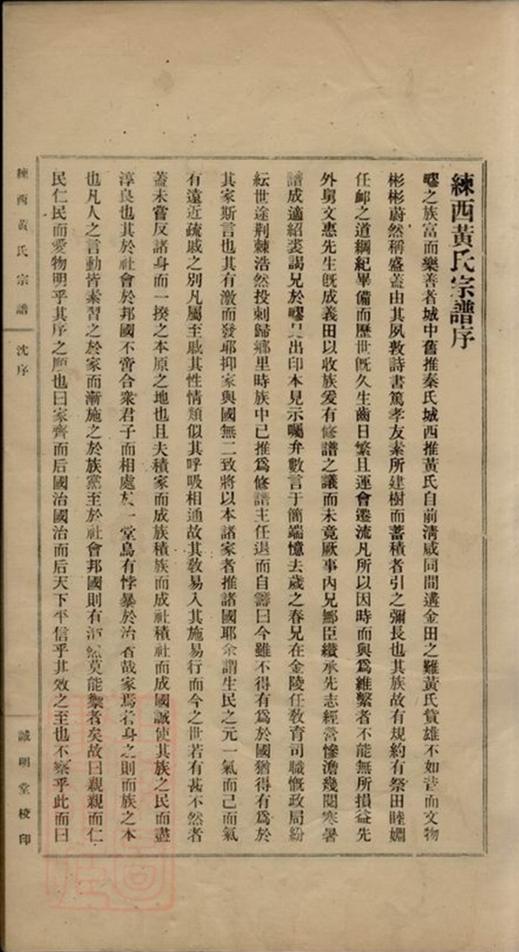 練西黃氏宗譜序
疁之族富而樂善者城中舊推秦氏城西推黃氏自前清咸同間遘金田之難黃氏貲雄不如昔而文物
彬彬蔚然稱盛蓋由其夙敦詩書篤孝友素所建樹而蓄積者引之彌長也其族故有規約有祭田睦婣
任卹之道綱紀畢備而歷世旣久生齒日繁且運會遷流凡所以因時而與爲維繫者不能無所損益先
外舅文惠先生旣成義田以收族爰有修譜之議而未竟厥事內兄鄦臣纘承先志經營慘澹幾閱寒暑
譜成適紹裘謁兄於疁兄出印本見示囑弁數言于簡端憶去歲之春兄在金陵任敎育司職慨政局紛
紜世途荆棘浩然投劾歸鄉里時族中已推爲修譜主任退而自籌曰今雖不得有爲於國猶得有爲於
其家斯言也其有激而發耶抑家與國無二致將以本諸家者推諸國耶余謂生民之元一氣而已而氣
有遠近疏戚之別凡屬至戚其性情類似其呼吸相通故其敎易入其施易行而今之世若有甚不然者
蓋未嘗反諸身而一揆之本原之地也且夫積家而成族積族而成社積社而成國誠使其族之民而盡
淳良也其於社會於邦國不啻合衆君子而相處於一堂烏有悖暴於治者哉家焉者身之則而族之本
也凡人之言動皆素習之於家而漸施之於族黨至於社會邦國則有沛然莫能禦者矣故曰親親而仁
民仁民而愛物明乎其序之順也曰家齊而后國治國治而后天下平信乎其效之至也不察乎此而曰
練西黃氏宗譜 沈序
誠明堂校印